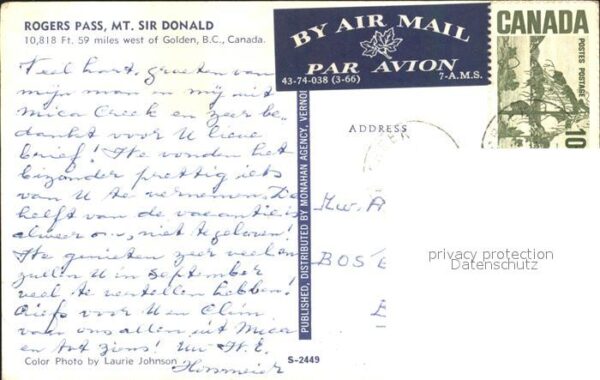 ROGERS PASS, MT. SIR DONALD
10,818 Ft. 59 miles west of Golden, B.C., Canada.
Veel hart. groeten van
mijn man en mij uit
Mica Creek en zeer be-
dankt voor U lieve
brief! We vonden het
bizonder prettig iets
van U te vernemen. De
helft van de vacantie is
alweer om, niet te geloven!
We genieten zeer veel en
zullen U in september
veel te vertellen hebben!
liefs voor U en
van ons allen uit Mica
en tot ziens! Uw
Color Photo by Laurie Johnson
PUBLISHED, DISTRIBUTED BY MONAHAN AGENCY, VERNO
S-2449
BY AIR MAIL
PAR AVION
43-74-038 (3-66)
7-A.M.S.
CANADA
POSTES POSTAGE
10
ADDRESS
Mw. A
BOS
privacy protection
Datenschutz